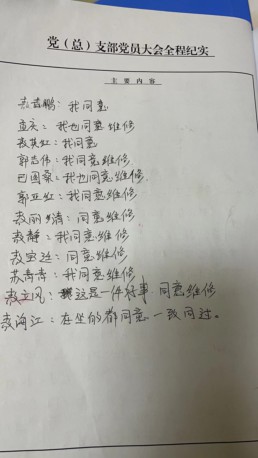 党（总）支部党员大会全程纪实
主要内容
鹏：我同意
：我也同意维修
红：我同意
郭志伟：我同意维修
巴国桑：我也同意维修.
郭亚红：我同意维修
丽娟：同意维修
静：我同意维修
宝廷：同意维修
苏青青：我同意维修
立风：这是一件好事 同意维修
海江：在坐的都同意一致同过。